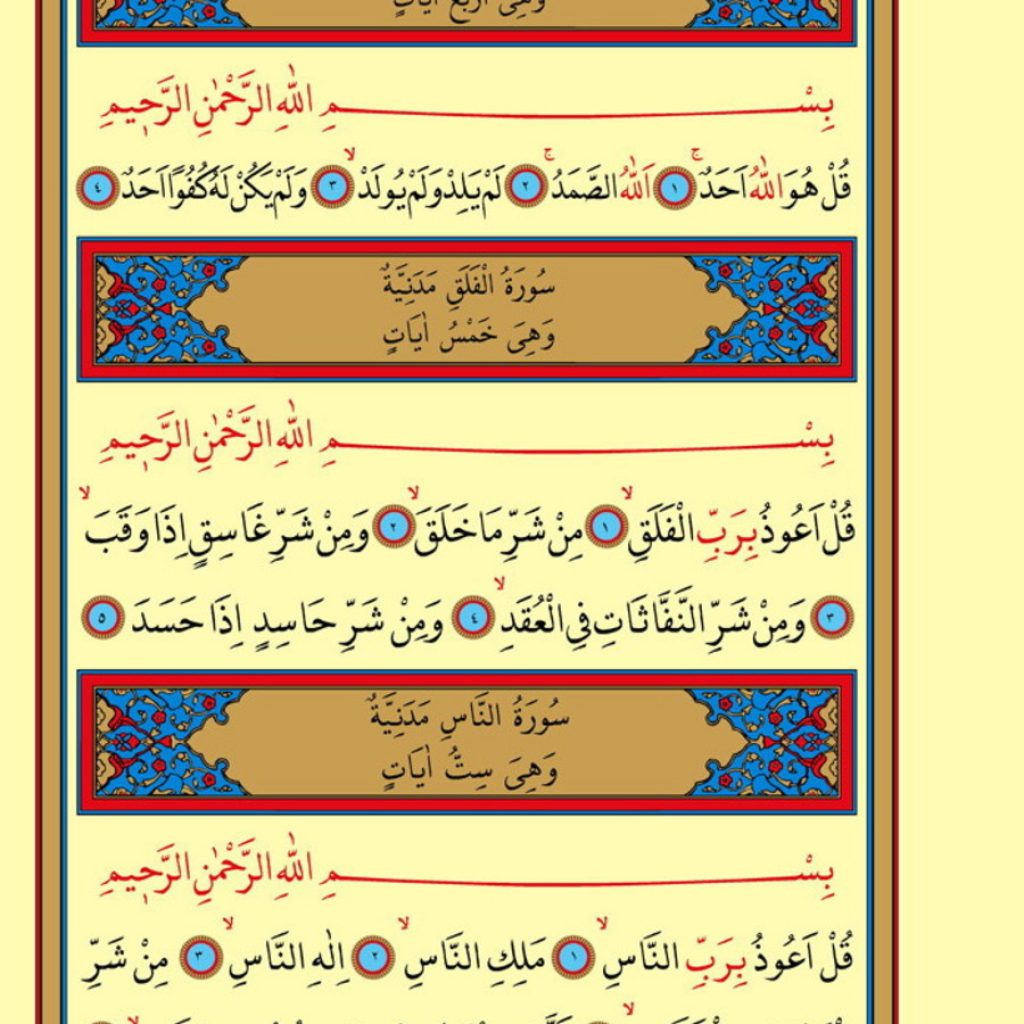 وَهِىَ اَرْبَعُ اٰيَاتٍ
بِسْمِ اللّٰهِ الرَّحْمٰنِ الرَّحٖيمِ
قُلْ هُوَ اللّٰهُ اَحَدٌۚ ﴿١﴾ اَللّٰهُ الصَّمَدُۚ ﴿٢﴾ لَمْ يَلِدْ وَلَمْ يُولَدْۙ ﴿٣﴾ وَلَمْ يَكُنْ لَهُ كُفُوًا اَحَدٌ ﴿٤﴾
سُورَةُ الْفَلَقِ مَدَنِيَّةٌ
وَهِىَ خَمْسُ اٰيَاتٍ
بِسْمِ اللّٰهِ الرَّحْمٰنِ الرَّحٖيمِ
قُلْ اَعُوذُ بِرَبِّ الْفَلَقِۙ ﴿١﴾ مِنْ شَرِّ مَا خَلَقَۙ ﴿٢﴾ وَمِنْ شَرِّ غَاسِقٍ اِذَا وَقَبَۙ
﴿٣﴾ وَمِنْ شَرِّ النَّفَّاثَاتِ فِى الْعُقَدِۙ ﴿٤﴾ وَمِنْ شَرِّ حَاسِدٍ اِذَا حَسَدَ ﴿٥﴾
سُورَةُ النَّاسِ مَدَنِيَّةٌ
وَهِىَ سِتُّ اٰيَاتٍ
بِسْمِ اللّٰهِ الرَّحْمٰنِ الرَّحٖيمِ
قُلْ اَعُوذُ بِرَبِّ النَّاسِۙ ﴿١﴾ مَلِكِ النَّاسِۙ ﴿٢﴾ اِلٰهِ النَّاسِۙ ﴿٣﴾ مِنْ شَرِّ